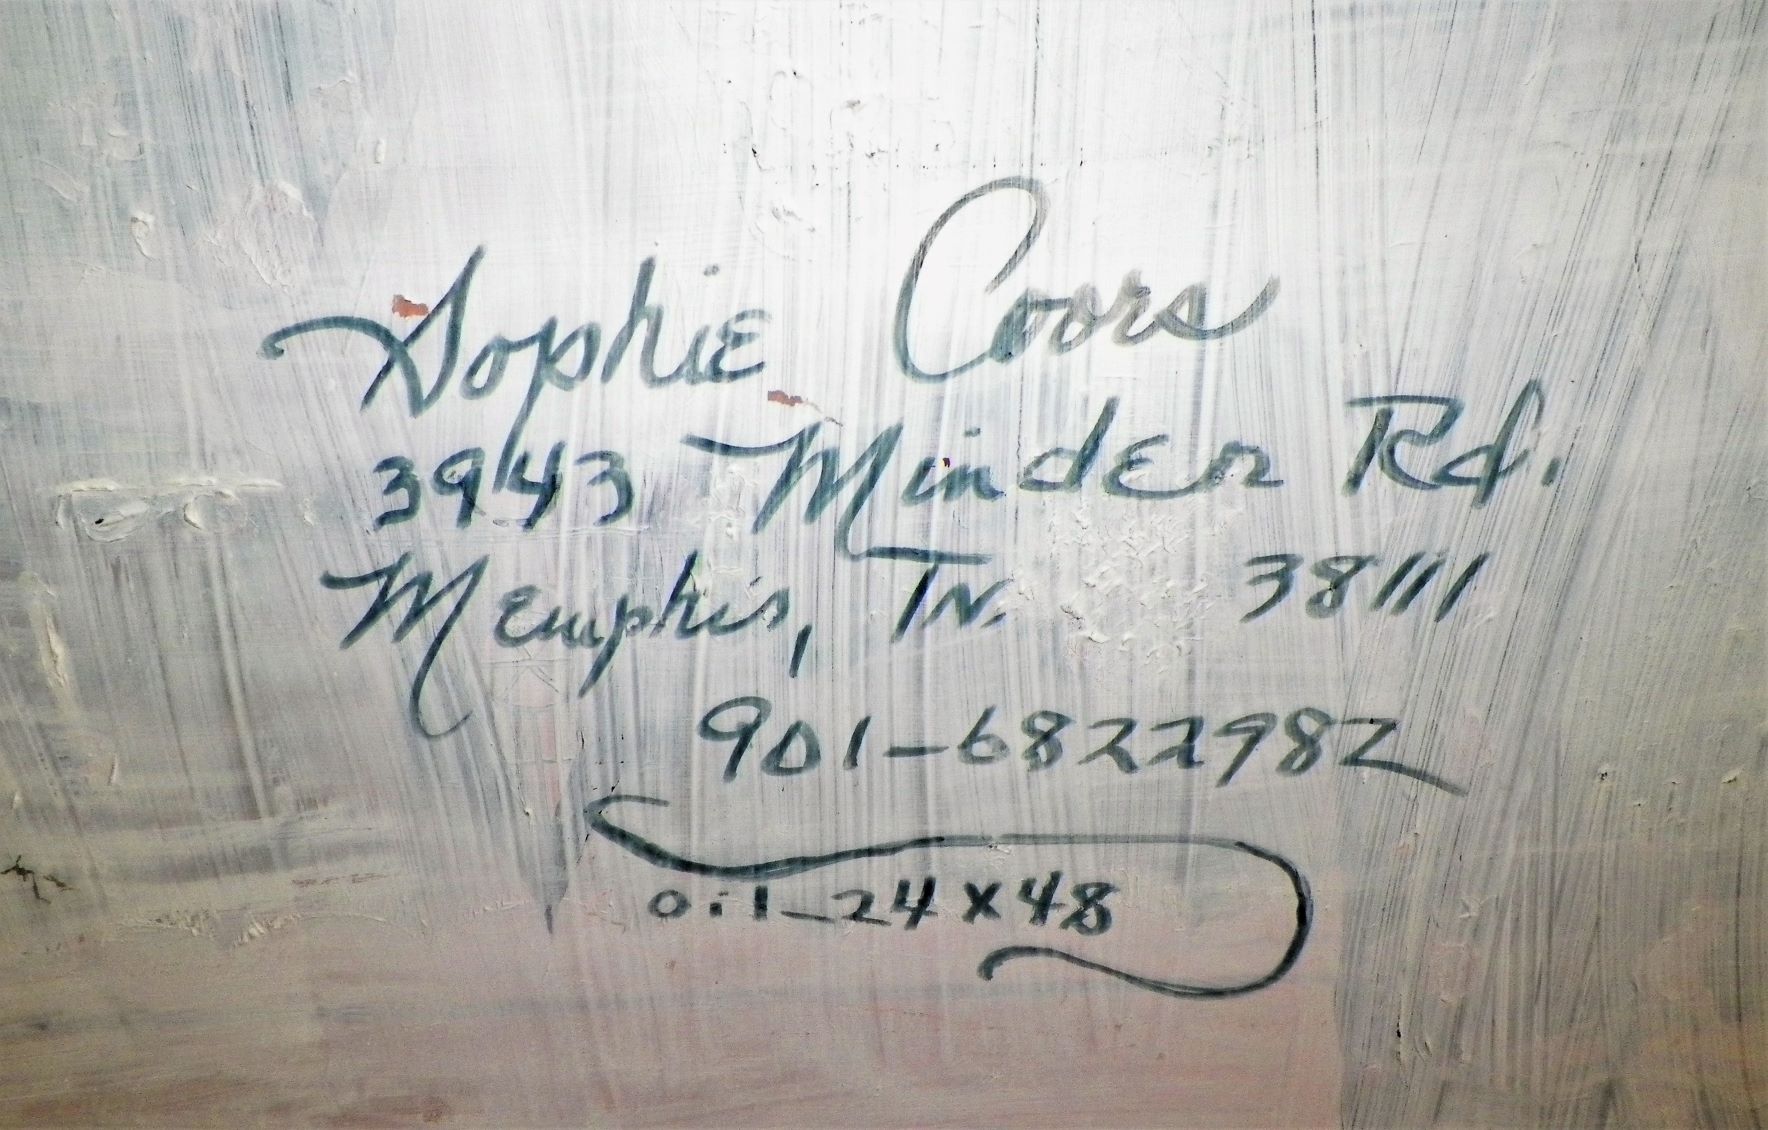 Sophie Coors
3943 Minder Rd.
Memphis, TN. 38111
901-6822982
oil-24x48